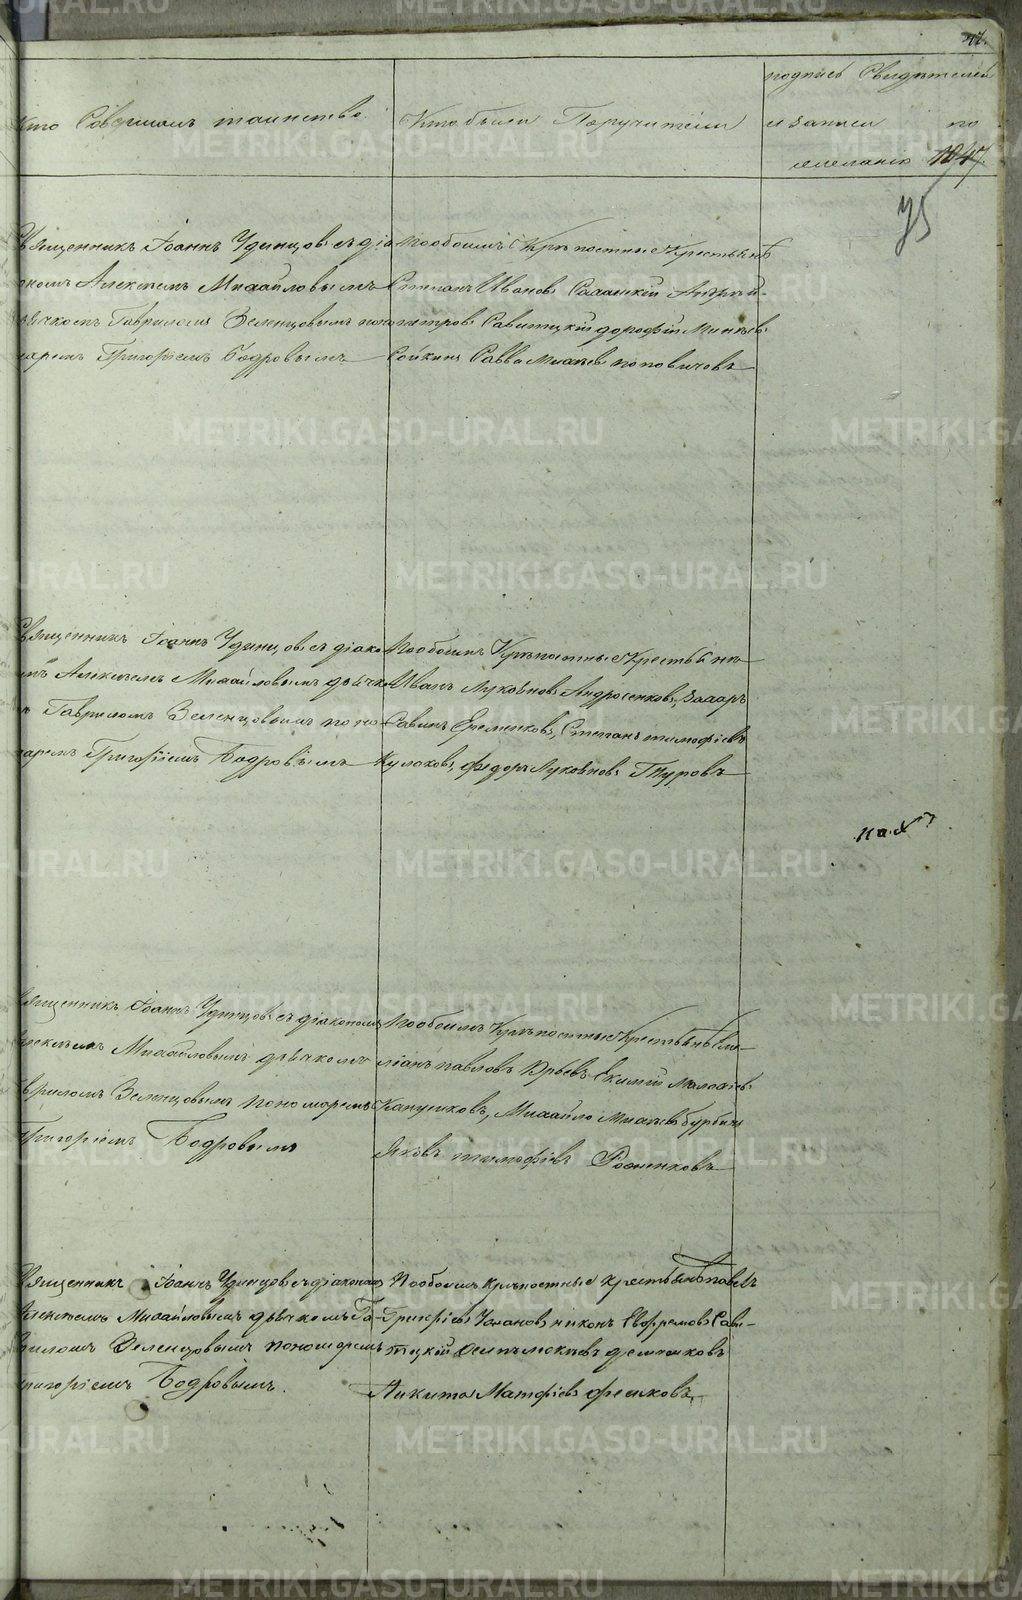 Кто Совершалъ таинство.
Кто были Поручители
подпись Свидѣтелей
и записи по
желанію
75
Священникъ Іоаннъ Удинцовъ съ діа
кономъ Алексѣемъ Михайловымъ
дьячкомъ Гавриломъ Зеленцовымъ поно
маремъ Григоріемъ Бодровымъ
По обоимъ Крѣпостные Крестьяне
Степанъ Ивановъ Андрей
петровъ Савитцкій дорофѣй
Савва поповичовъ
Священникъ Іоаннъ Удинцовъ съ діако
мъ Алексѣемъ Михайловымъ дьячко
Гавриломъ Зеленцовымъ поно
маремъ Григоріемъ Бодровымъ
По обоимъ Крѣпостные Крестьяне
Иванъ Лукояновъ Андросенковъ, Захаръ
Савинъ Еременковъ, Степанъ тимофѣевъ
Кулаковъ, федоръ Лукояновъ Гнуровъ
Священникъ Іоаннъ Удинцовъ съ діакономъ
Алексѣемъ Михайловымъ дьячкомъ
Гавриломъ Зеленцовымъ пономаремъ
Григоріемъ Бодровымъ
По обоимъ Крѣпостные Крестьяне
павловъ Юрьевъ Екимъ
Михайло
Яковъ тимофѣевъ
Священникъ Іоаннъ Удинцовъ съ діакономъ
Алексѣемъ Михайловымъ дьячкомъ Га
вриломъ Зеленцовымъ пономаремъ
Григоріемъ Бодровымъ.
По обоимъ крѣпостные крестьяне павелъ
никонъ Евфремовъ Сави
тцкій
Никита Матфѣевъ
METRIKI.GASO-URAL.RU